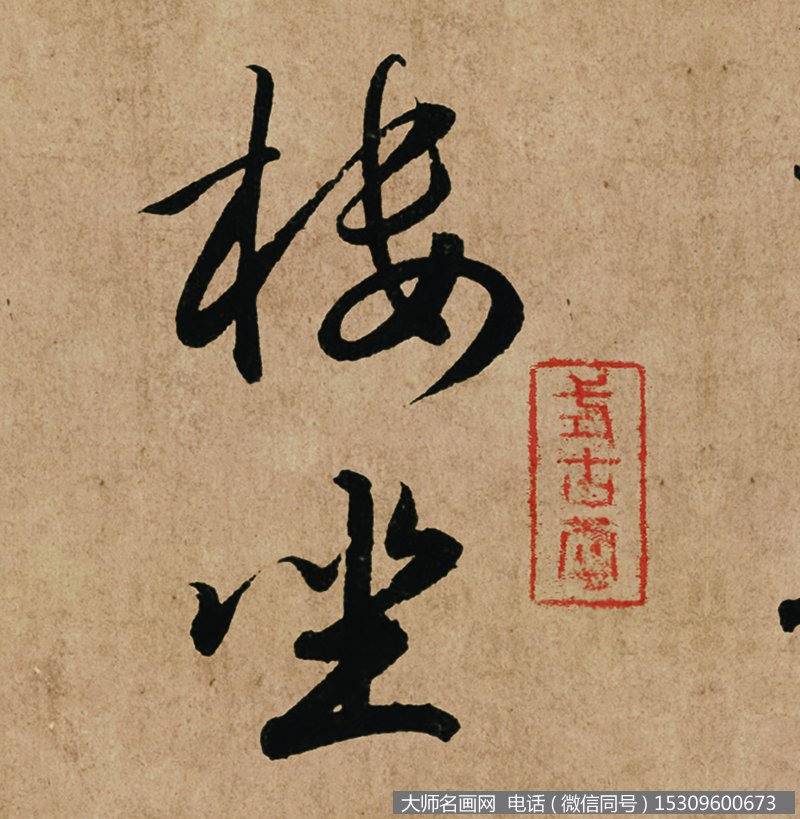 樓
坐
大师名画网 电话（微信同号）15309600673